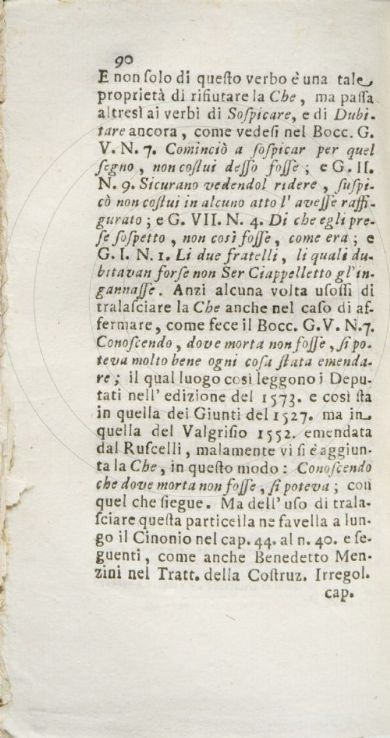 90
E non ſolo di queſto verbo è una tale
proprietà di rifiutare la Che, ma paſſa
altresì ai verbi di Soſpicare, e di Dubi-
tare ancora, come vedeſi nel Bocc. G.
V. N. 7. Cominciò a ſoſpicar per quel
ſegno, non coſtui deſſo foſſe; e G. II.
N. 9. Sicurano vedendol ridere, ſuſpi-
cò non coſtui in alcuno atto l' aveſſe raffi-
gurato; e G. VII. N. 4. Di che egli pre-
ſe ſoſpetto, non così foſſe, come era; e
G. I. N. 1. Li due fratelli, li quali du-
bitavan forſe non Ser Ciappelletto gl' in-
gannaſſe. Anzi alcuna volta usoſſi di
tralaſciare la Che anche nel caſo di af-
fermare, come fece il Bocc. G. V. N. 7.
Conoſcendo, dove morta non foſſe, ſi po-
teva molto bene ogni coſa ſtata emenda-
re; il qual luogo così leggono i Depu-
tati nell' edizione del 1573. e così ſta
in quella dei Giunti del 1527. ma in
quella del Valgriſio 1552. emendata
dal Ruſcelli, malamente vi ſi è aggiun-
ta la Che, in queſto modo: Conoſcendo
che dove morta non foſſe, ſi poteva; con
quel che ſiegue. Ma dell' uſo di trala-
ſciare queſta particella ne favella a lun-
go il Cinonio nel cap. 44. al n. 40. e ſe-
guenti, come anche Benedetto Men-
zini nel Tratt. della Coſtruz. Irregol.
cap.